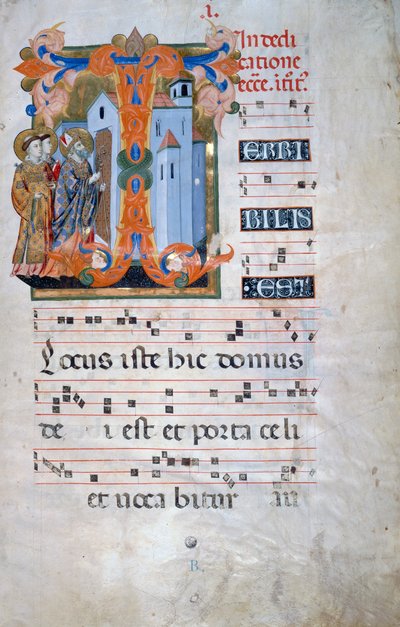 I.
In dedi
catione
ecce.
T
ERRI
BILIS
EST
Locus iste hic domus
de i est et porta celi
et uoca bitur au
B.